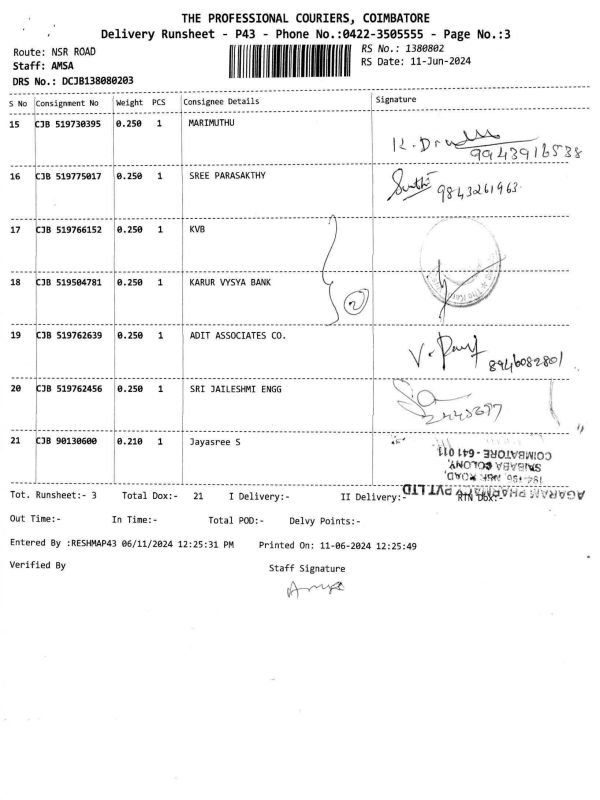 THE PROFESSIONAL COURIERS, COIMBATORE
Delivery Runsheet - P43 - Phone No.:0422-3505555 - Page No.:3
Route: NSR ROAD
RS No.: 1380802
Staff: AMSA
RS Date: 11-Jun-2024
DRS No.: DCJB138080203
S No Consignment No Weight PCS Consignee Details Signature
15 CJB 519730395 0.250 1 MARIMUTHU
9943916538
16 CJB 519775017 0.250 1 SREE PARASAKTHY
9843261963
17 CJB 519766152 0.250 1 KVB
18 CJB 519504781 0.250 1 KARUR VYSYA BANK
2
19 CJB 519762639 0.250 1 ADIT ASSOCIATES CO.
8946082801
20 CJB 519762456 0.250 1 SRI JAILESHMI ENGG
21 CJB 90130600 0.210 1 Jayasree S
AGARAM PHARMACY PVT LTD
ROAD,
SAIBABA COLONY,
COIMBATORE - 641 011
Tot. Runsheet:- 3 Total Dox:- 21 I Delivery:- II Delivery:- RTN Dox:-
Out Time:- In Time:- Total POD:- Delvy Points:-
Entered By :RESHMAP43 06/11/2024 12:25:31 PM Printed On: 11-06-2024 12:25:49
Verified By
Staff Signature